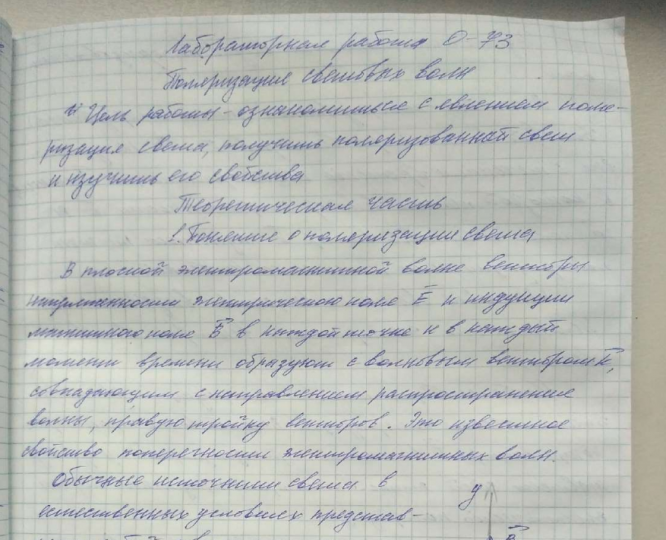 Лабораторная работа О-73
Поляризация световых волн
Цель работы - ознакомиться с явлением поля-
ризация света, получить поляризованный свет
и изучить его свойства
Теоретическая часть
1. Понятие о поляризации света
В плоской электромагнитной волне векторы
напряженности электрического поля E и индукции
магнитного поля B в каждой точке и в каждый
момент времени образуют с волновым вектором k,
совпадающим с направлением распространения
волны, правую тройку векторов. Это известное
свойство поперечности электромагнитных волн.
Обычные источники света в
естественных условиях представ-
y